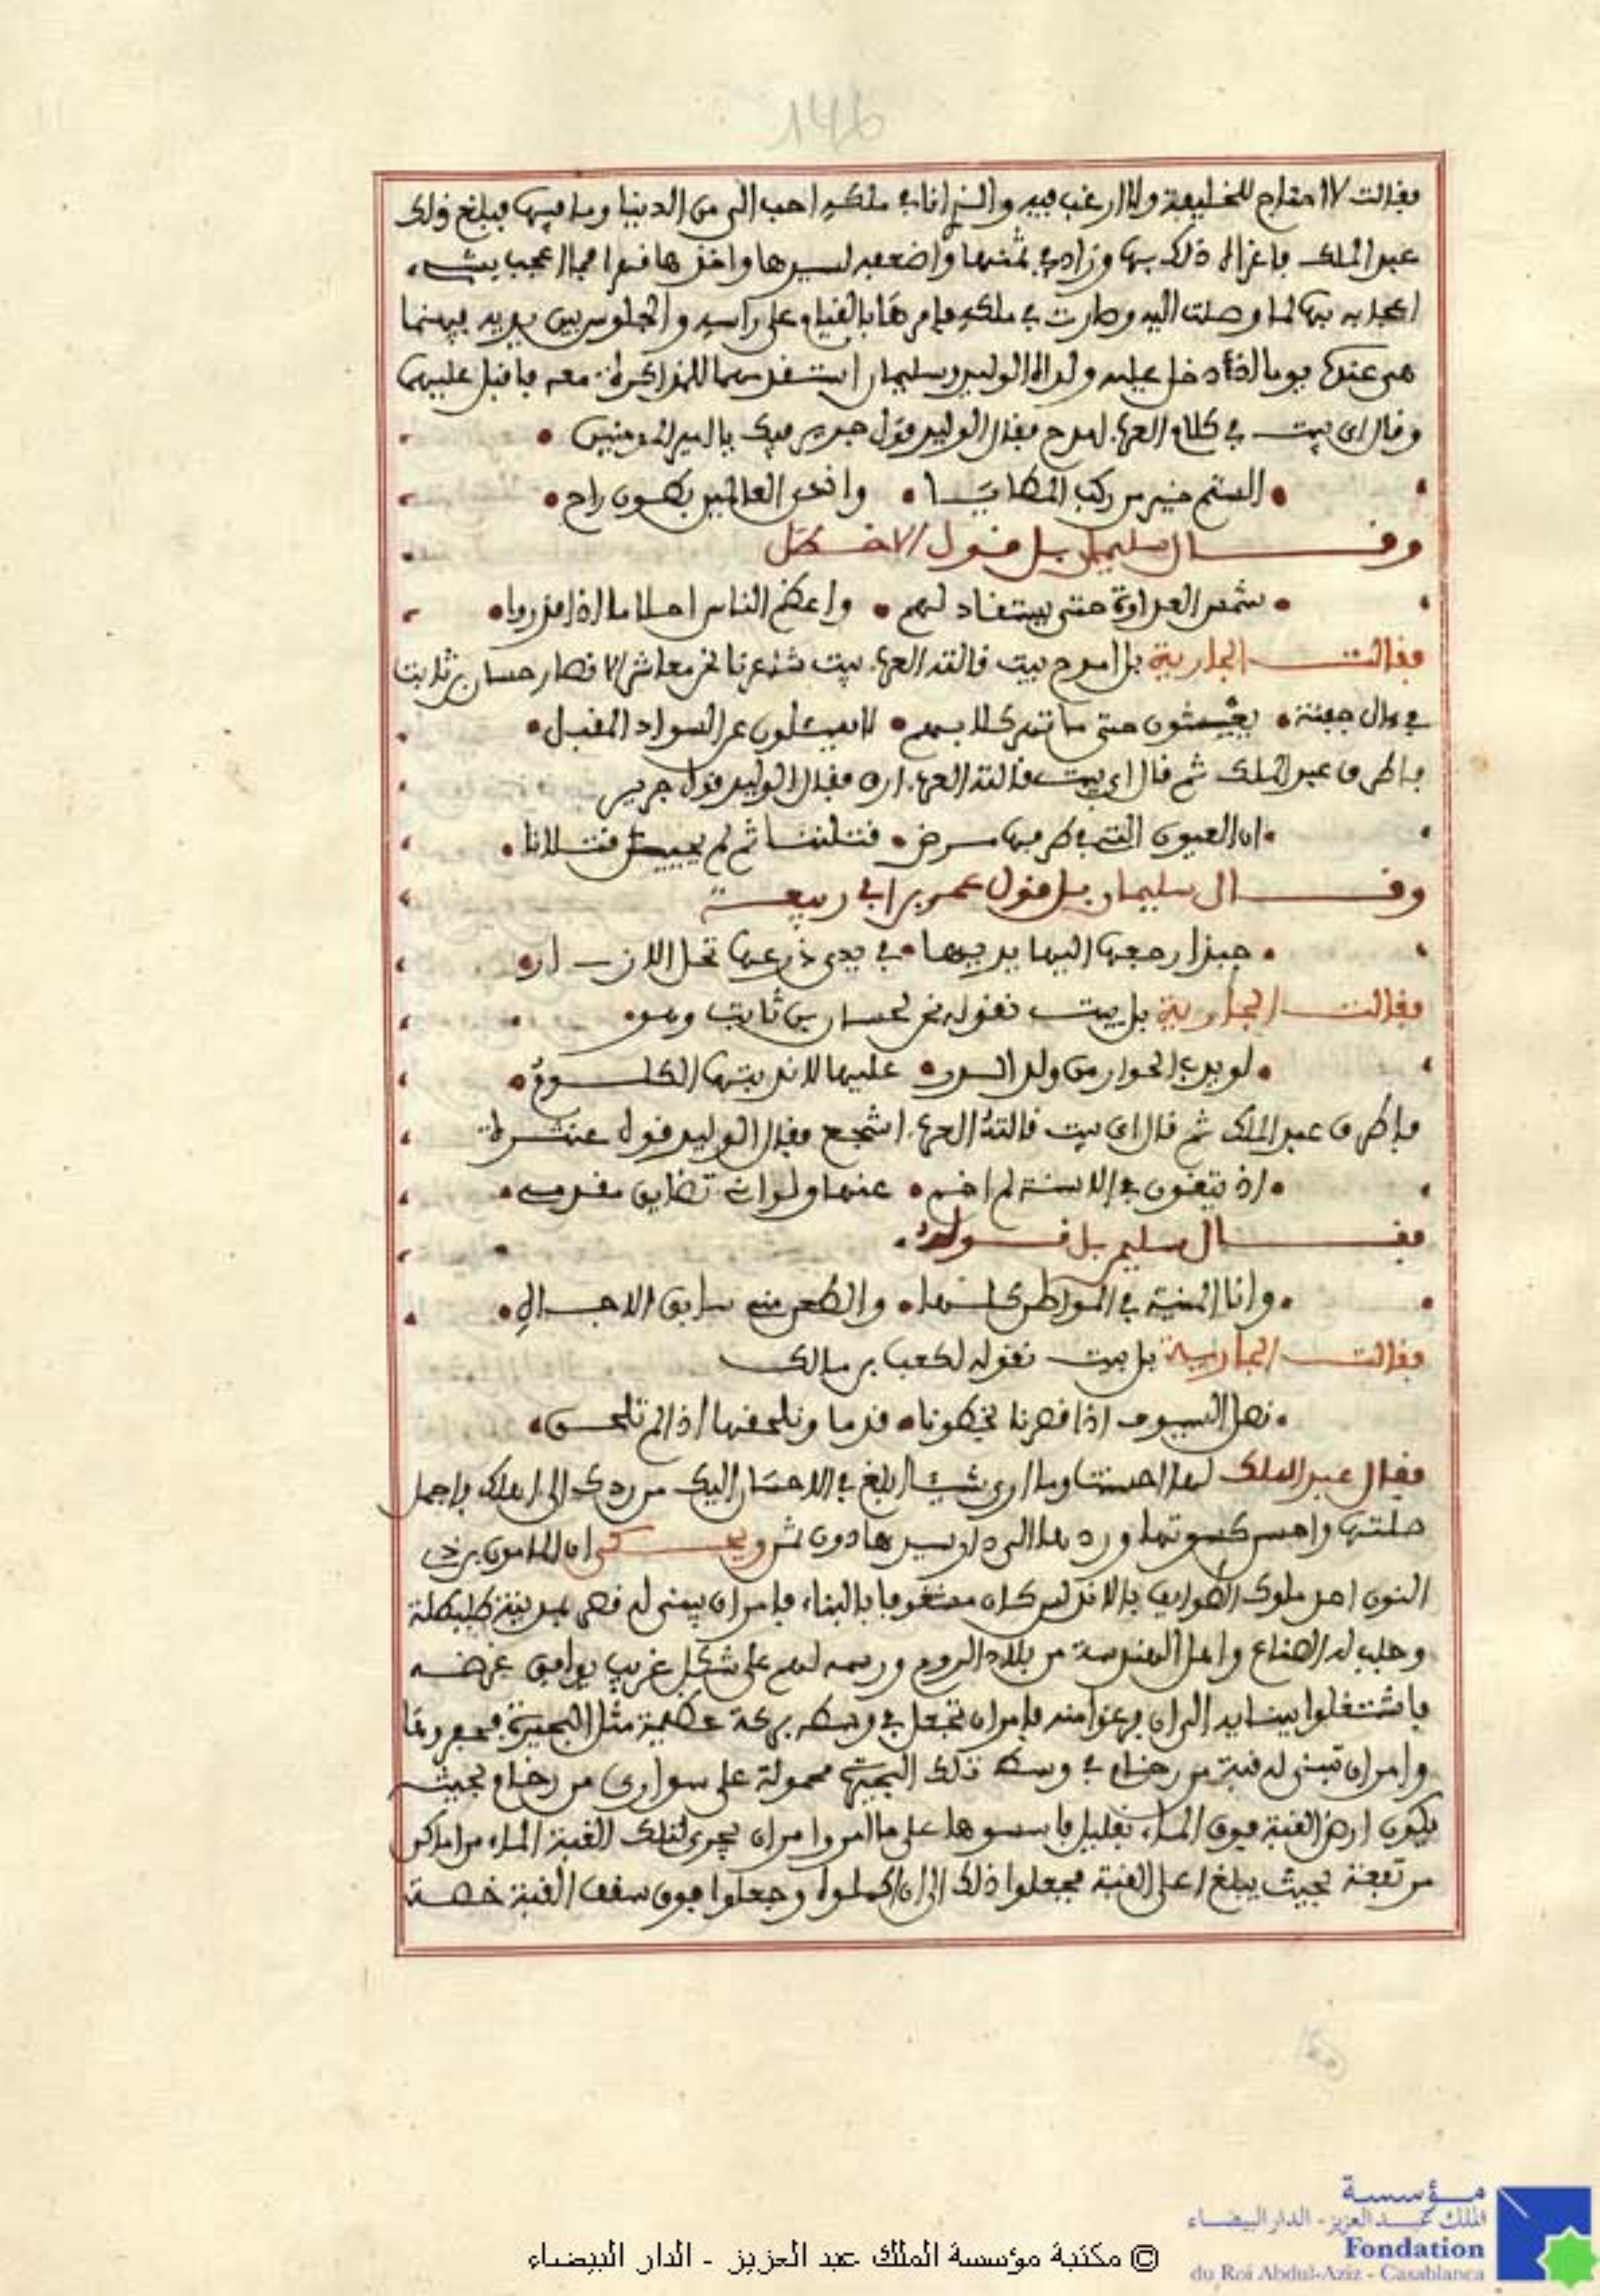 146
فقالت لا احتاج للخليفة ولا ارغب فيه والذي انا في ملكه احب الي من الدنيا وما فيها فبلغ ذلك
عبد الملك فاغراه ذلك بها وزاد في ثمنها واضعفه لسيدها واخذها قهرا فما اعجب بشيء
اعجابه بها لما وصلت اليه وصارت في ملكه فامرها بالقيام على راسه والجلوس بين يديه فبينما
هي عنده يوما اذ دخل عليه ولداه الوليد وسليمان استقدمهما للمذاكرة معه فاقبل عليهما
وقال اي بيت في كلام العرب امدح فقال الوليد قول جرير فيك يا امير المومنين
الستم خير من ركب المطايا واندى العالمين بطون راح
وقال سليمان بل قول الاخطل
شمس العداوة حتى يستقاد لهم واعظم الناس احلاما اذا قدروا
فقالت الجارية بل امدح بيت قالته العرب بيت شاعرنا نحن معاشر الانصار حسان بن ثابت
في ءال جفنة يغشون حتى ما تهر كلابهم لا يسئلون عن السواد المقبل
فاطرق عبد الملك ثم قال اي بيت قالته العرب ارق فقال الوليد قول جرير
ان العيون التي في طرفها مرض قتلننا ثم لم يحيين قتلانا
وقال سليمان بل قول عمر بن ابي ربيعة
حبذا رجعها اليها يديها في يدي ذرعها تحل الازار
فقالت الجارية بل بيت نقوله نحن لحسان بن ثابت وهو
لو يدب الحولي من ولد الذر عليها لاندبتها الكلوم
فاطرق عبد الملك ثم قال اي بيت قالته العرب اشجع فقال الوليد قول عنترة
اذ يتقون بي الاسنة لم اخم عنها ولو اني تضايق مقدمي
فقال سليمن بل قوله
وانا المنية في المواطن كلها والطعن مني سابق الاجال
فقالت الجارية بل بيت نقوله لكعب بن مالك
نصل السيوف اذا قصرنا بخطونا قدما ونلحقها اذا لم تلحق
فقال عبد الملك لها احسنت وما ارى شيئا ابلغ في الاحسان اليك من ردك الى اهلك فاجمل
صلتها واحسن كسوتها وردها الى دار سيدها دون ثمن ويحكى ان المامون بن ذي
النون احد ملوك الطوايف بالاندلس كان مشغوفا بالبناء فامر ان يبنى له قصر بمدينة طليطلة
وجلب له الصناع واهل الهندسة من بلاد الروم ورسمه لهم على شكل غريب يوافق غرضه
فاشتغلوا ببنايه الى ان فرغوا منه فامر ان تجعل في وسطه بركة عظيمة مثل البحيرة فحفروها
وامر ان تبنى له قبة من رخام في وسط تلك البحيرة محمولة على سواري من رخام بحيث
يكون ارض القبة فوق الماء بقليل فاسسوها على ما امر وامر ان يجرى لتلك القبة الماء من اماكن
مرتفعة بحيث يبلغ اعلى القبة فجعلوا ذلك الى ان اكملوا وجعلوا فوق سقف القبة خصة
مؤسسة
الملك عبد العزيز - الدار البيضاء
Fondation
du Roi Abdul-Aziz - Casablanca
© مكتبة مؤسسة الملك عبد العزيز - الدار البيضاء